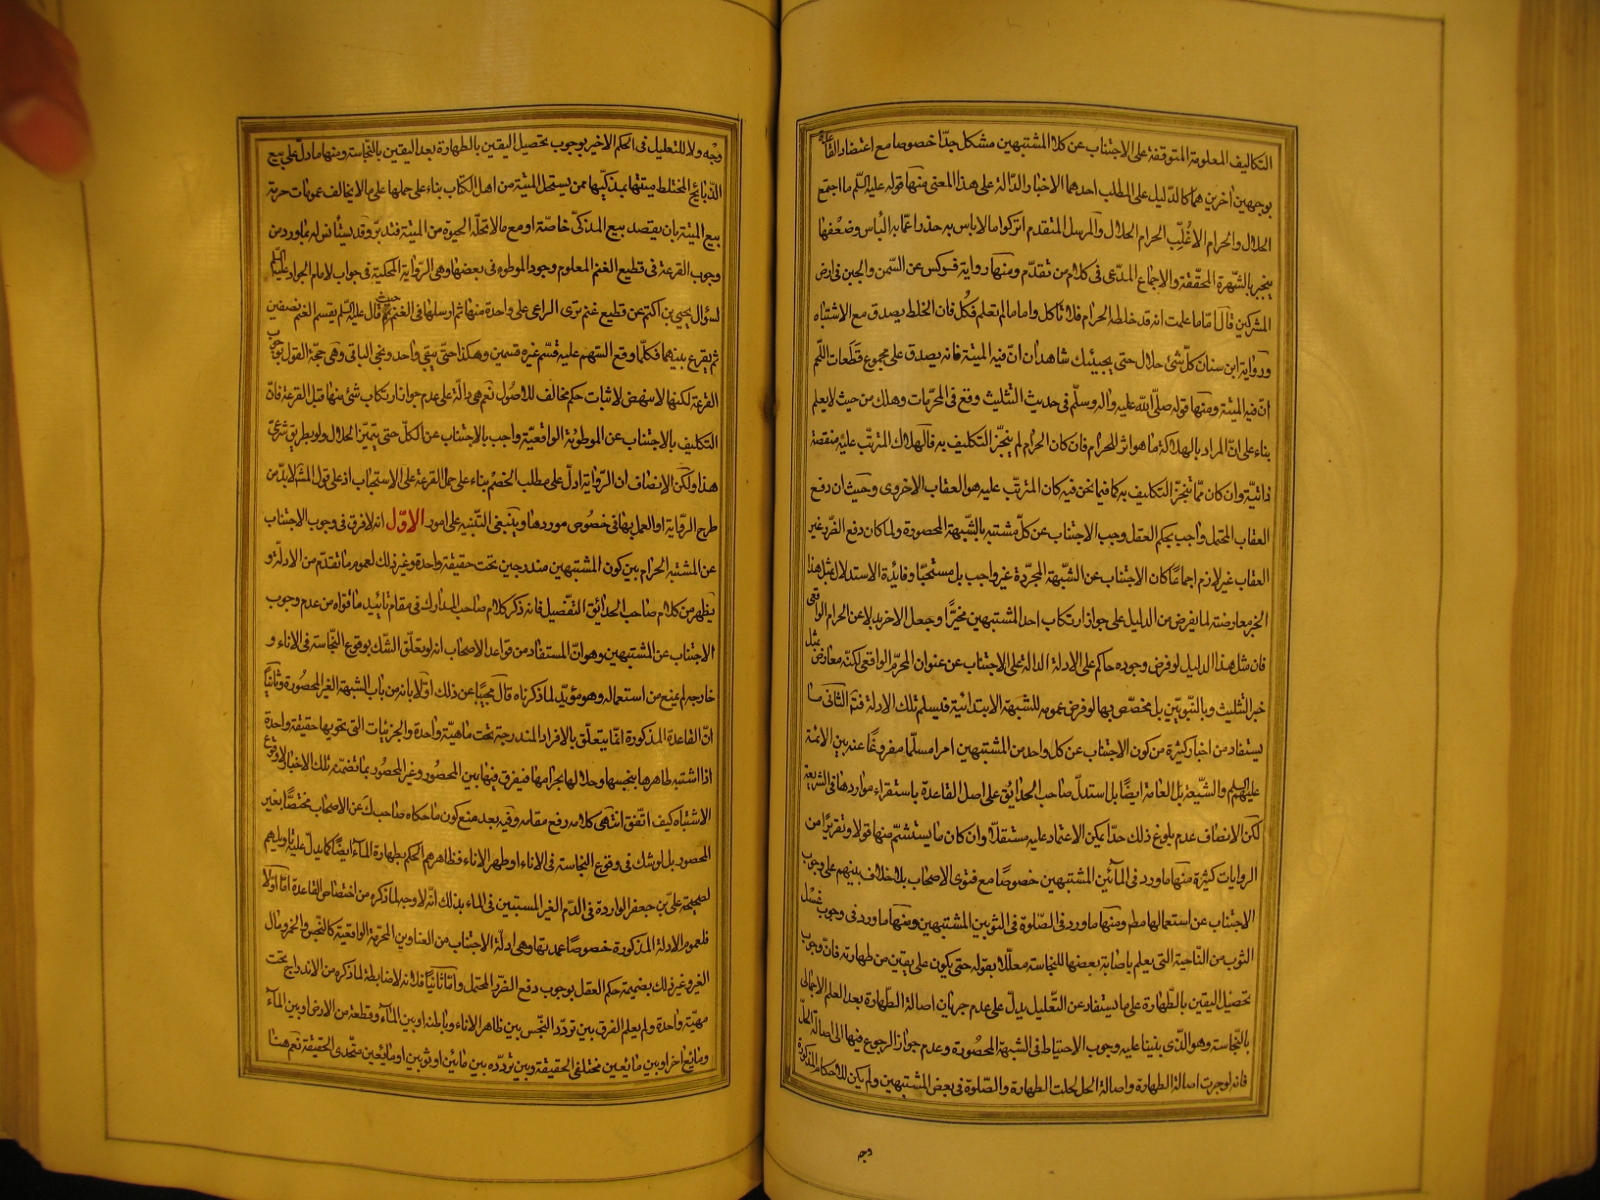 التكاليف المعلومة المتوقفة على الاجتناب عن كلا المشتبهين مشكل جدّا خصوصا مع اعتضاد القاعدة
بوجهين آخرين هما كالدليل على المطلب احدهما الاخبار الدالة على هذا المعنى منها قوله عليه السّلم ما اجتمع
الحلال والحرام الا غُلّب الحرام الحلال والمرسل المتقدم اتركوا ما لا بأس به حذرا عمّا به البأس وضعفها
ينجبر بالشهرة المحققة والاجماع المدّعى فى كلام من تقدّم ومنها رواية ضريس عن السّمن والجبن فى ارض
المشركين قال امّا ما علمت انه قد خلطه الحرام فلا تأكل واما ما لم تعلم فكُل فان الخلط يصدق مع الاشتباه
ورواية ابن سنان كلّ شئ حلال حتى يجيئك شاهدان انّ فيه الميتة فانه يصدق على مجموع قطعات اللّحم
انّ فيه الميتة ومنها قوله صلّى الله عليه وآله وسلّم فى حديث التثليث وقع فى المحرّمات وهلك من حيث لا يعلم
بناء على انّ المراد بالهلاكة ما هو اثر للحرام فان كان الحرام لم يتنجّز التكليف به فالهلاك المترتّب عليه منقصة
ذاتيّة وان كان ممّا يتنجّز التكليف به كما فيما نحن فيه كان المترتّب عليه هو العقاب الاخروى وحيث ان دفع
العقاب المحتمل واجب بحكم العقل وجب الاجتناب عن كلّ مشتبه بالشّبهة المحصورة ولما كان دفع الضّرر غير
العقاب غير لازم اجماعًا كان الاجتناب عن الشّبهة المجرّدة غير واجب بل مستحبّا وفائدة الاستدلال بمثل هذا
الخبر معارضته لما يفرض من الدليل على جواز ارتكاب احد المشتبهين مخيّرًا وجعل الاخر بدلا عن الحرام الواقعى
فان مثل هذا الدليل لو فرض وجوده حاكم على الادلة الدالة على الاجتناب عن عنوان المحرّم الواقعى لكنّه معارض بمثل
خبر التثليث وبالنّبويّين بل مخصّص بها لو فرض عمومه للشبهة الابتدائيّة فيسلم تلك الادلة فتم الثانى ما
يستفاد من اخبار كثيرة من كون الاجتناب عن كل واحد من المشتبهين امرا مسلّما مفروغًا عنه بين الائمّة
عليهم السلم والشّيعة بل العامة ايضًا بل استدلّ صاحب الحدائق على اصل القاعدة باستقراء مواردها فى الشريعة
لكن الانصاف عدم بلوغ ذلك حدّا يمكن الاعتماد عليه مستقلّا وان كان ما يستشمّ منها قولا وتقريرًا من
الروايات كثيرة منها ما ورد فى المائين المشتبهين خصوصًا مع فتوى الاصحاب بلا خلاف بينهم على وجوب
الاجتناب عن استعمالهما مطم ومنها ما ورد فى الصّلوة فى الثوبين المشتبهين ومنها ما ورد فى وجوب غسل
الثوب من الناحية التى يعلم باصابة بعضها للنجاسة معلّلا بقوله حتى يكون على يقين من طهارته فان وجوب
تحصيل اليقين بالطّهارة على ما يستفاد عن التّعليل يدلّ على عدم جريان اصالة الطّهارة بعد العلم الاجمالى
بالنّجاسة وهو الّذى بنينا عليه وجوب الاحتياط فى الشبهة المحصورة وعدم جواز الرجوع فيها الى اصالة الحلّ
فانه لو جرت اصالة الطهارة واصالة الحل لحلت الطهارة والصّلوة فى بعض المشتبهين ولم يكن للاحكام المذكورة
وجه
وجْه ولا للتعليل فى الحكم الاخير بوجوب تحصيل اليقين بالطهارة بعد اليقين بالنّجاسة ومنها ما دلّ على بيع
الذّبايح المختلط ميتتها بمذكيّها ممن يستحل الميتة من اهل الكتاب بناء على حملها على ما لا يخالف عمومات حرمة
بيع الميتة بان يقصد بيع المذكّى خاصّة او مع ما لا تحلّه الحيوة من الميتة فتدبّر وقد يستأنس له بما ورد من
وجوب القرعة فى قطيع الغنم المعلوم وجود الموطوء فى بعضها وهى الرّواية المحكية فى جواب الامام الجواد عليه السلم
لسؤال يحيى بن اكثم عن قطيع غنم نزى الراعى على واحدة منها ثم ارسلها فى الغنم حيث قال عليه السّلم يقسم الغنم نصفين
ثم يقرع بينهما فكلّما وقع السّهم عليه قسّم غيره قسمين وهكذا حتّى يبقى واحد ونجى الباقى وهى حجّة القول بوجوب
القرعة لكنها لا تنهض لاثبات حكم مخالف للاصُول نعم هى دالّة على عدم جواز ارتكاب شئ منها قبل القرعة فانّ
التكليف بالاجتناب عن الموطوئة الواقعيّة واجب بالاجتناب عن الكلّ حتى يتميّز الحلال ولو بطريق شرعىّ
هذا ولكن الانصاف ان الرّواية ادلّ على مطلب الخصم بناء على حمل القرعة على الاستحباب اذ على قول المشهور لا بدّ من
طرح الرّواية او العمل بها فى خصُوص موردها وينبغى التّنبيه على امور الاوّل انه لا فرق فى وجوب الاجتناب
عن المشتبه الحرام بين كون المشتبهين مندرجين تحت حقيقة واحدة وغير ذلك لعموم ما تقدّم من الادلّة و
يظهر من كلام صاحب الحدائق التفصيل فانه ذكر كلام صاحب المدارك فى مقام تأييد ما قوّاه من عدم وجوب
الاجتناب عن المشتبهين وهو انّ المستفاد من قواعد الاصحاب انه لو تعلّق الشّك بوقوع النّجاسة فى الاناء و
خارجه لم يمنع من استعماله وهو مؤيّد لما ذكرناه قال مجيبًا عن ذلك اوّلا بانه من باب الشبهة الغير المحصورة وثانيًا
انّ القاعدة المذكورة انما يتعلّق بالافراد المندرجة تحت ماهيّة واحدة والجزئيات التى تحويها حقيقة واحدة
اذا اشتبه طاهرها بنجسها وحلالها بحرامها فيفرق فيها بين المحصُور وغير المحصُور بما تضمّنه تلك الاخبار لا وقوع
الاشتباه كيف اتّفق انتهى كلامه رفع مقامه وفيه بعد منع كون ما حكاه صاحب ك عن الاصحاب مختصًّا بغير
المحصور بل لو شك فى وقوع النجاسة فى الاناء او ظهر الاناء فظاهرهم الحكم بطهارة الماء ايضًا كما يدلّ عليه تاويلهم
لصحيحة علىّ بن جعفر الواردة فى الدّم الغير المستبين فى الماء بذلك انّه لا وجه لما ذكره من اختصاص القاعدة امّا اوّلا
فلعموم الادلة المذكورة خصوصًا عمدتها وهى ادلّة الاجتناب من العناوين المحرّمة الواقعيّة كالنّجس والخمر ومال
الغير وغير ذلك بضميمة حكم العقل بوجوب دفع الضّرر المحتمل وامّا ثانيًا فلانه لا ضابطة لما ذكره من الاندراج تحت
مهيّة واحدة ولم يعلم الفرق بين تردّد النّجس بين ظاهر الاناء وباطنه او بين الماء وقطعة من الارض او بين الماء
ومائع اخر او بين مائعين مختلفى الحقيقة وبين تردّده بين مائين او ثوبين او مائعين متّحدى الحقيقة نعم هنا